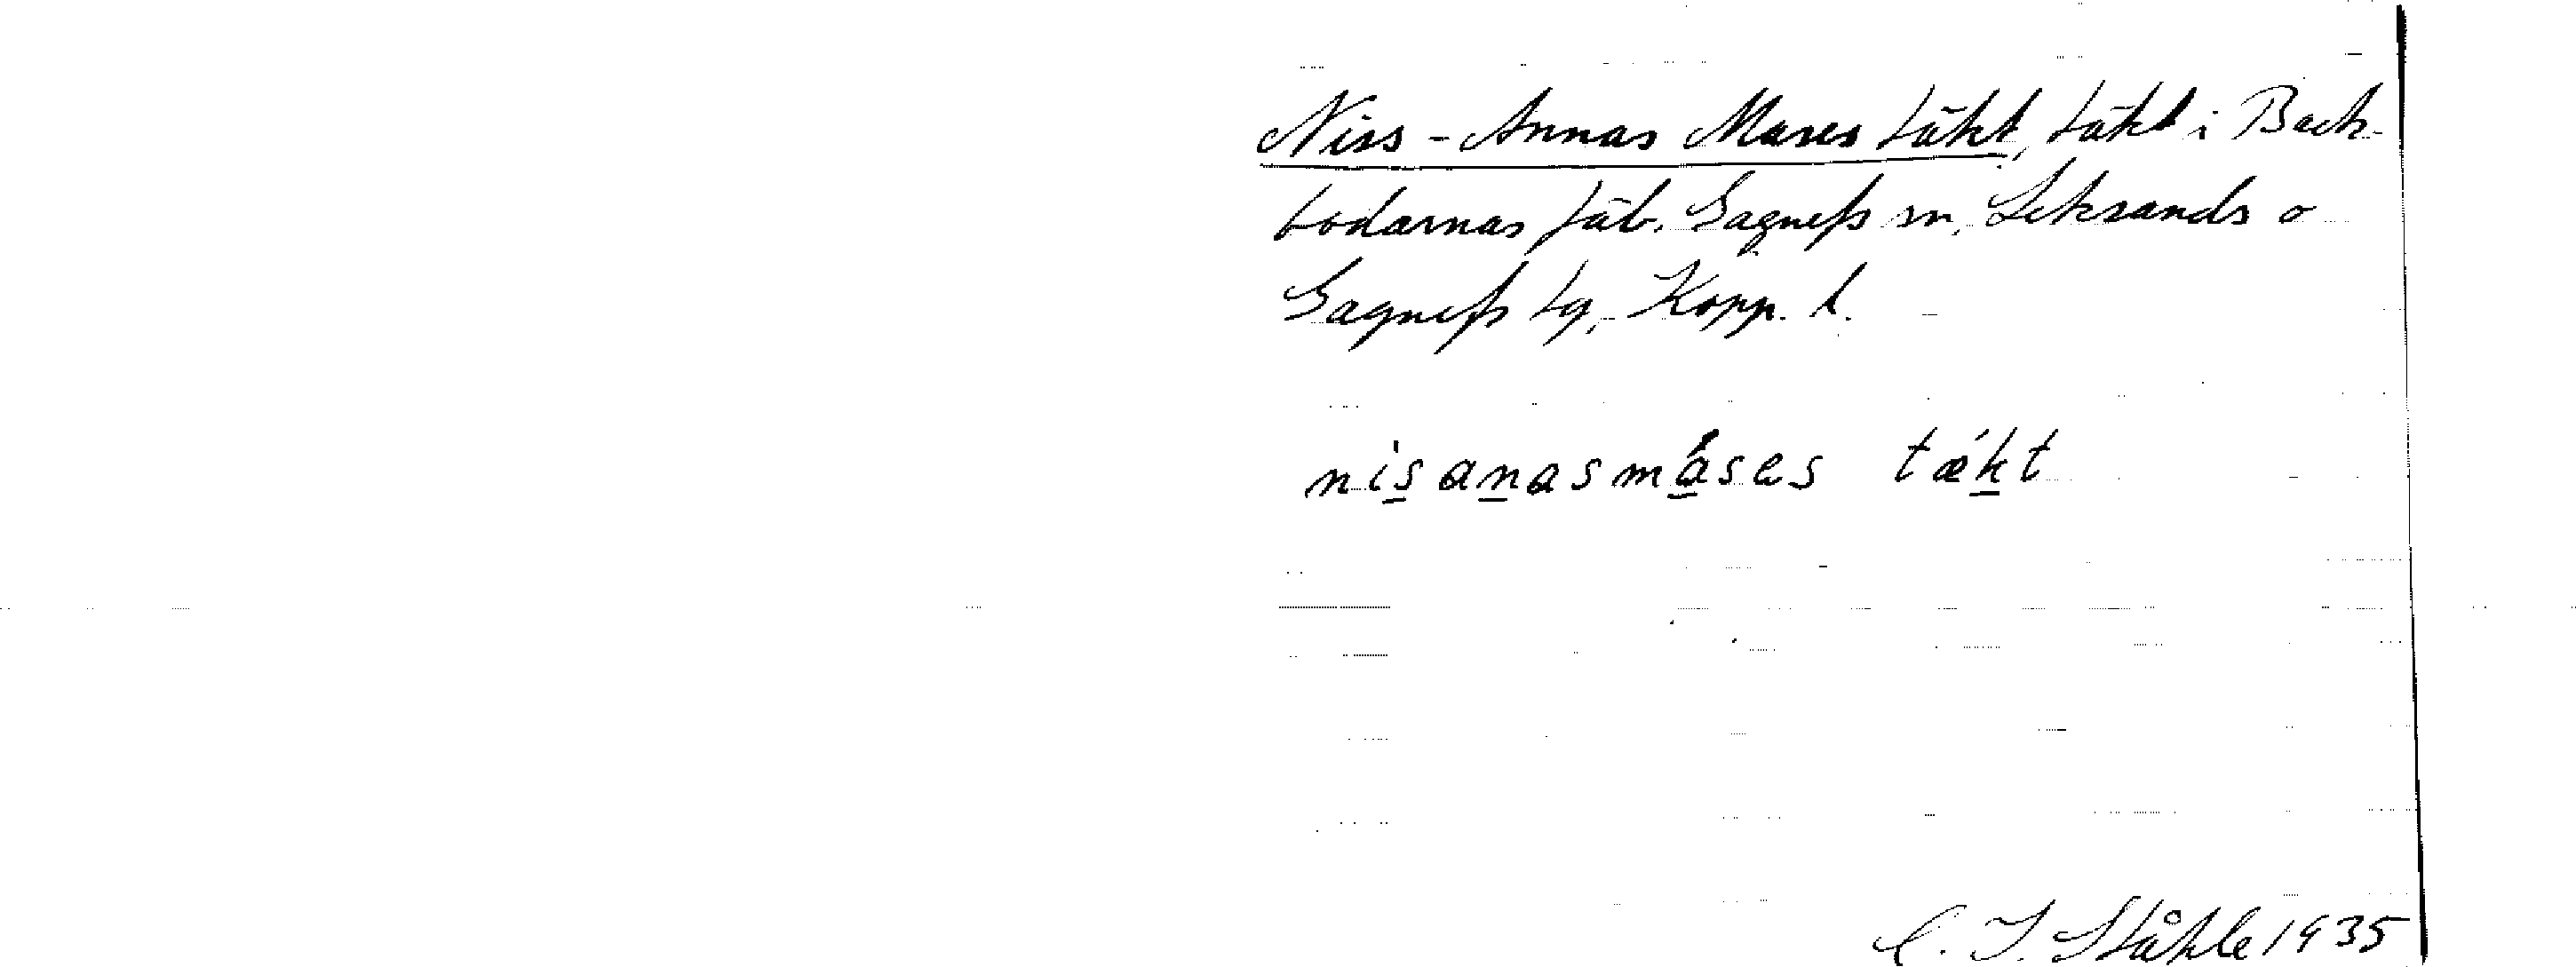 Niss-Annas Mases täkt, täkt i Back-
bodarnas fäb. Gagnefs sn, Leksands o
Gagnefs tg, Kopp. l.
nisanasmáses tǽkt
C. I. Ståhle 1935